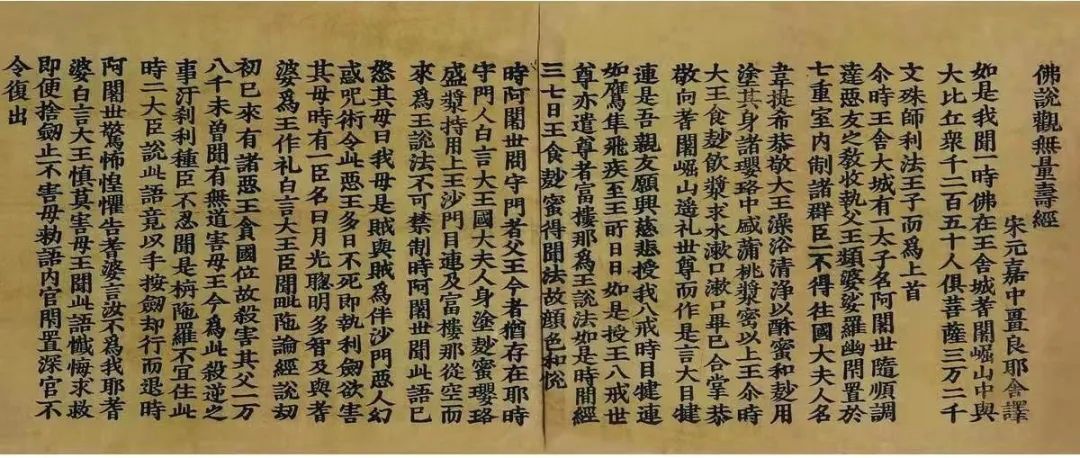 佛說觀無量壽經
宋元嘉中畺良耶舍譯
如是我聞一時佛在王舍城耆闍崛山中與
大比丘衆千二百五十人俱菩薩三万二千
文殊師利法王子而爲上首
尒時王舍大城有一太子名阿闍世隨順調
達惡友之教收執父王頻婆娑羅幽閇置於
七重室内制諸群臣一不得往國大夫人名
韋提希恭敬大王澡浴清淨以酥蜜和麨用
塗其身諸瓔珞中盛蒲桃漿密以上王尒時
大王食麨飲漿求水漱口漱口畢已合掌恭
敬向耆闍崛山遥礼世尊而作是言大目揵
連是吾親友願興慈悲授我八戒時目揵連
如鷹隼飛疾至王所日日如是授王八戒世
尊亦遣尊者富樓那爲王說法如是時間經
三七日王食麨蜜得聞法故顔色和悅
時阿闍世問守門者父王今者猶存在耶時
守門人白言大王國大夫人身塗麨蜜瓔珞
盛漿持用上王沙門目連及富樓那從空而
來爲王說法不可禁制時阿闍世聞此語已
怒其母曰我母是賊與賊爲伴沙門惡人幻
或呪術令此惡王多日不死即執利劒欲害
其母時有一臣名曰月光聰明多智及與耆
婆爲王作礼白言大王臣聞毗陁論經說劫
初已來有諸惡王貪國位故殺害其父一万
八千未曽聞有無道害母王今爲此殺逆之
事汙刹利種臣不忍聞是栴陁羅不宜住此
時二大臣說此語竟以手按劒却行而退時
阿闍世驚怖惶懼告耆婆言汝不爲我耶耆
婆白言大王慎莫害母王聞此語懺悔求救
即便捨劒止不害母勑語内官閇置深宫不
令復出